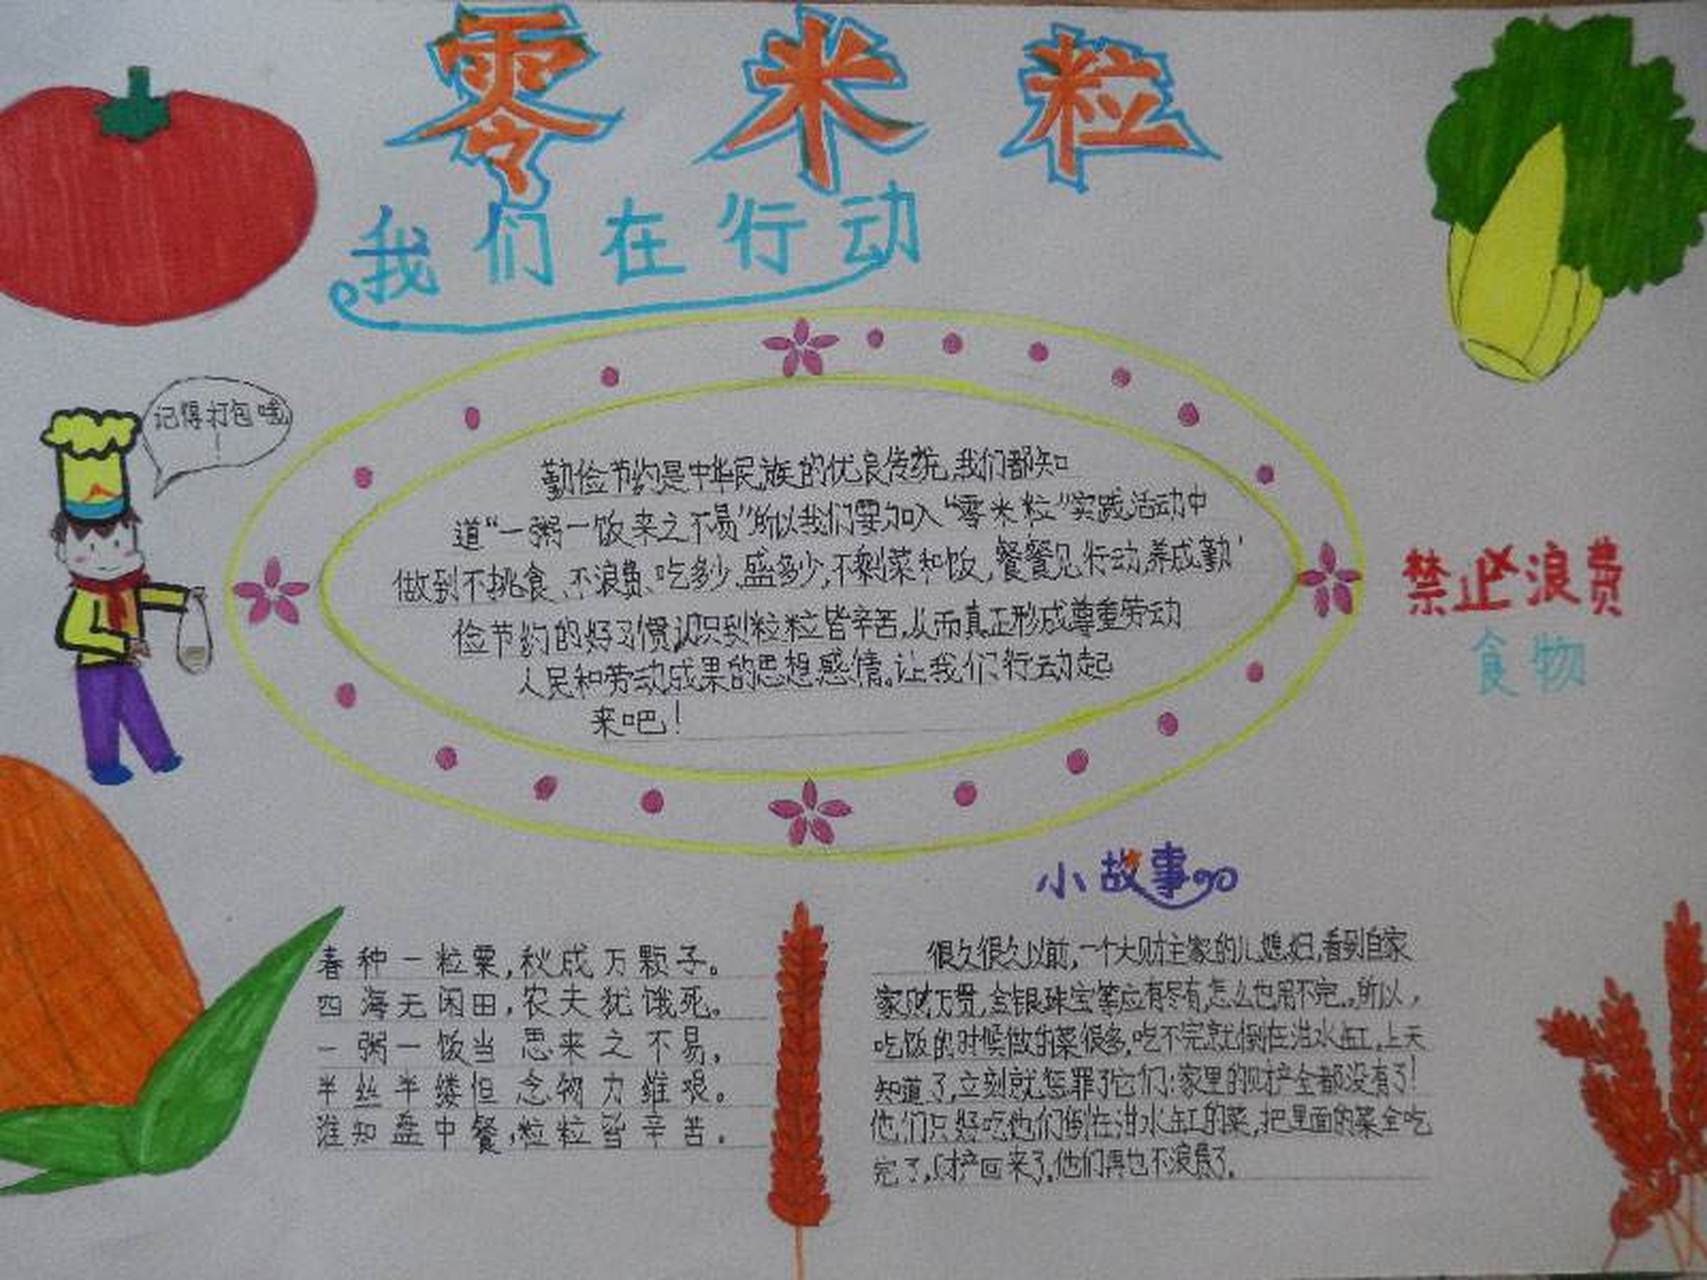 零米粒
我们在行动
记得打包哦
！
勤俭节约是中华民族的优良传统,我们都知
道“一粥一饭,来之不易”所以我们要加入“零米粒”实践活动中
做到不挑食、不浪费、吃多少,盛多少,不剩菜和饭,餐餐见行动,养成勤
俭节约的好习惯,认识到粒粒皆辛苦,从而真正形成尊重劳动
人民和劳动成果的思想感情。让我们行动起
来吧！
禁止浪费
食物
春种一粒粟,秋成万颗子。
四海无闲田,农夫犹饿死。
一粥一饭当思来之不易,
半丝半缕恒念物力维艰。
谁知盘中餐,粒粒皆辛苦。
小故事
很久很久以前,一个大财主家的儿媳妇,看到自家
家财万贯,金银珠宝等应有尽有,怎么也用不完。所以,
吃饭的时候做的菜很多,吃不完就倒在泔水缸。上天
知道了,立刻就惩罪了它们:家里的财产全都没有了！
他们只好吃他们倒在泔水缸的菜,把里面的菜全吃
完了,财产回来了,他们再也不浪费了。